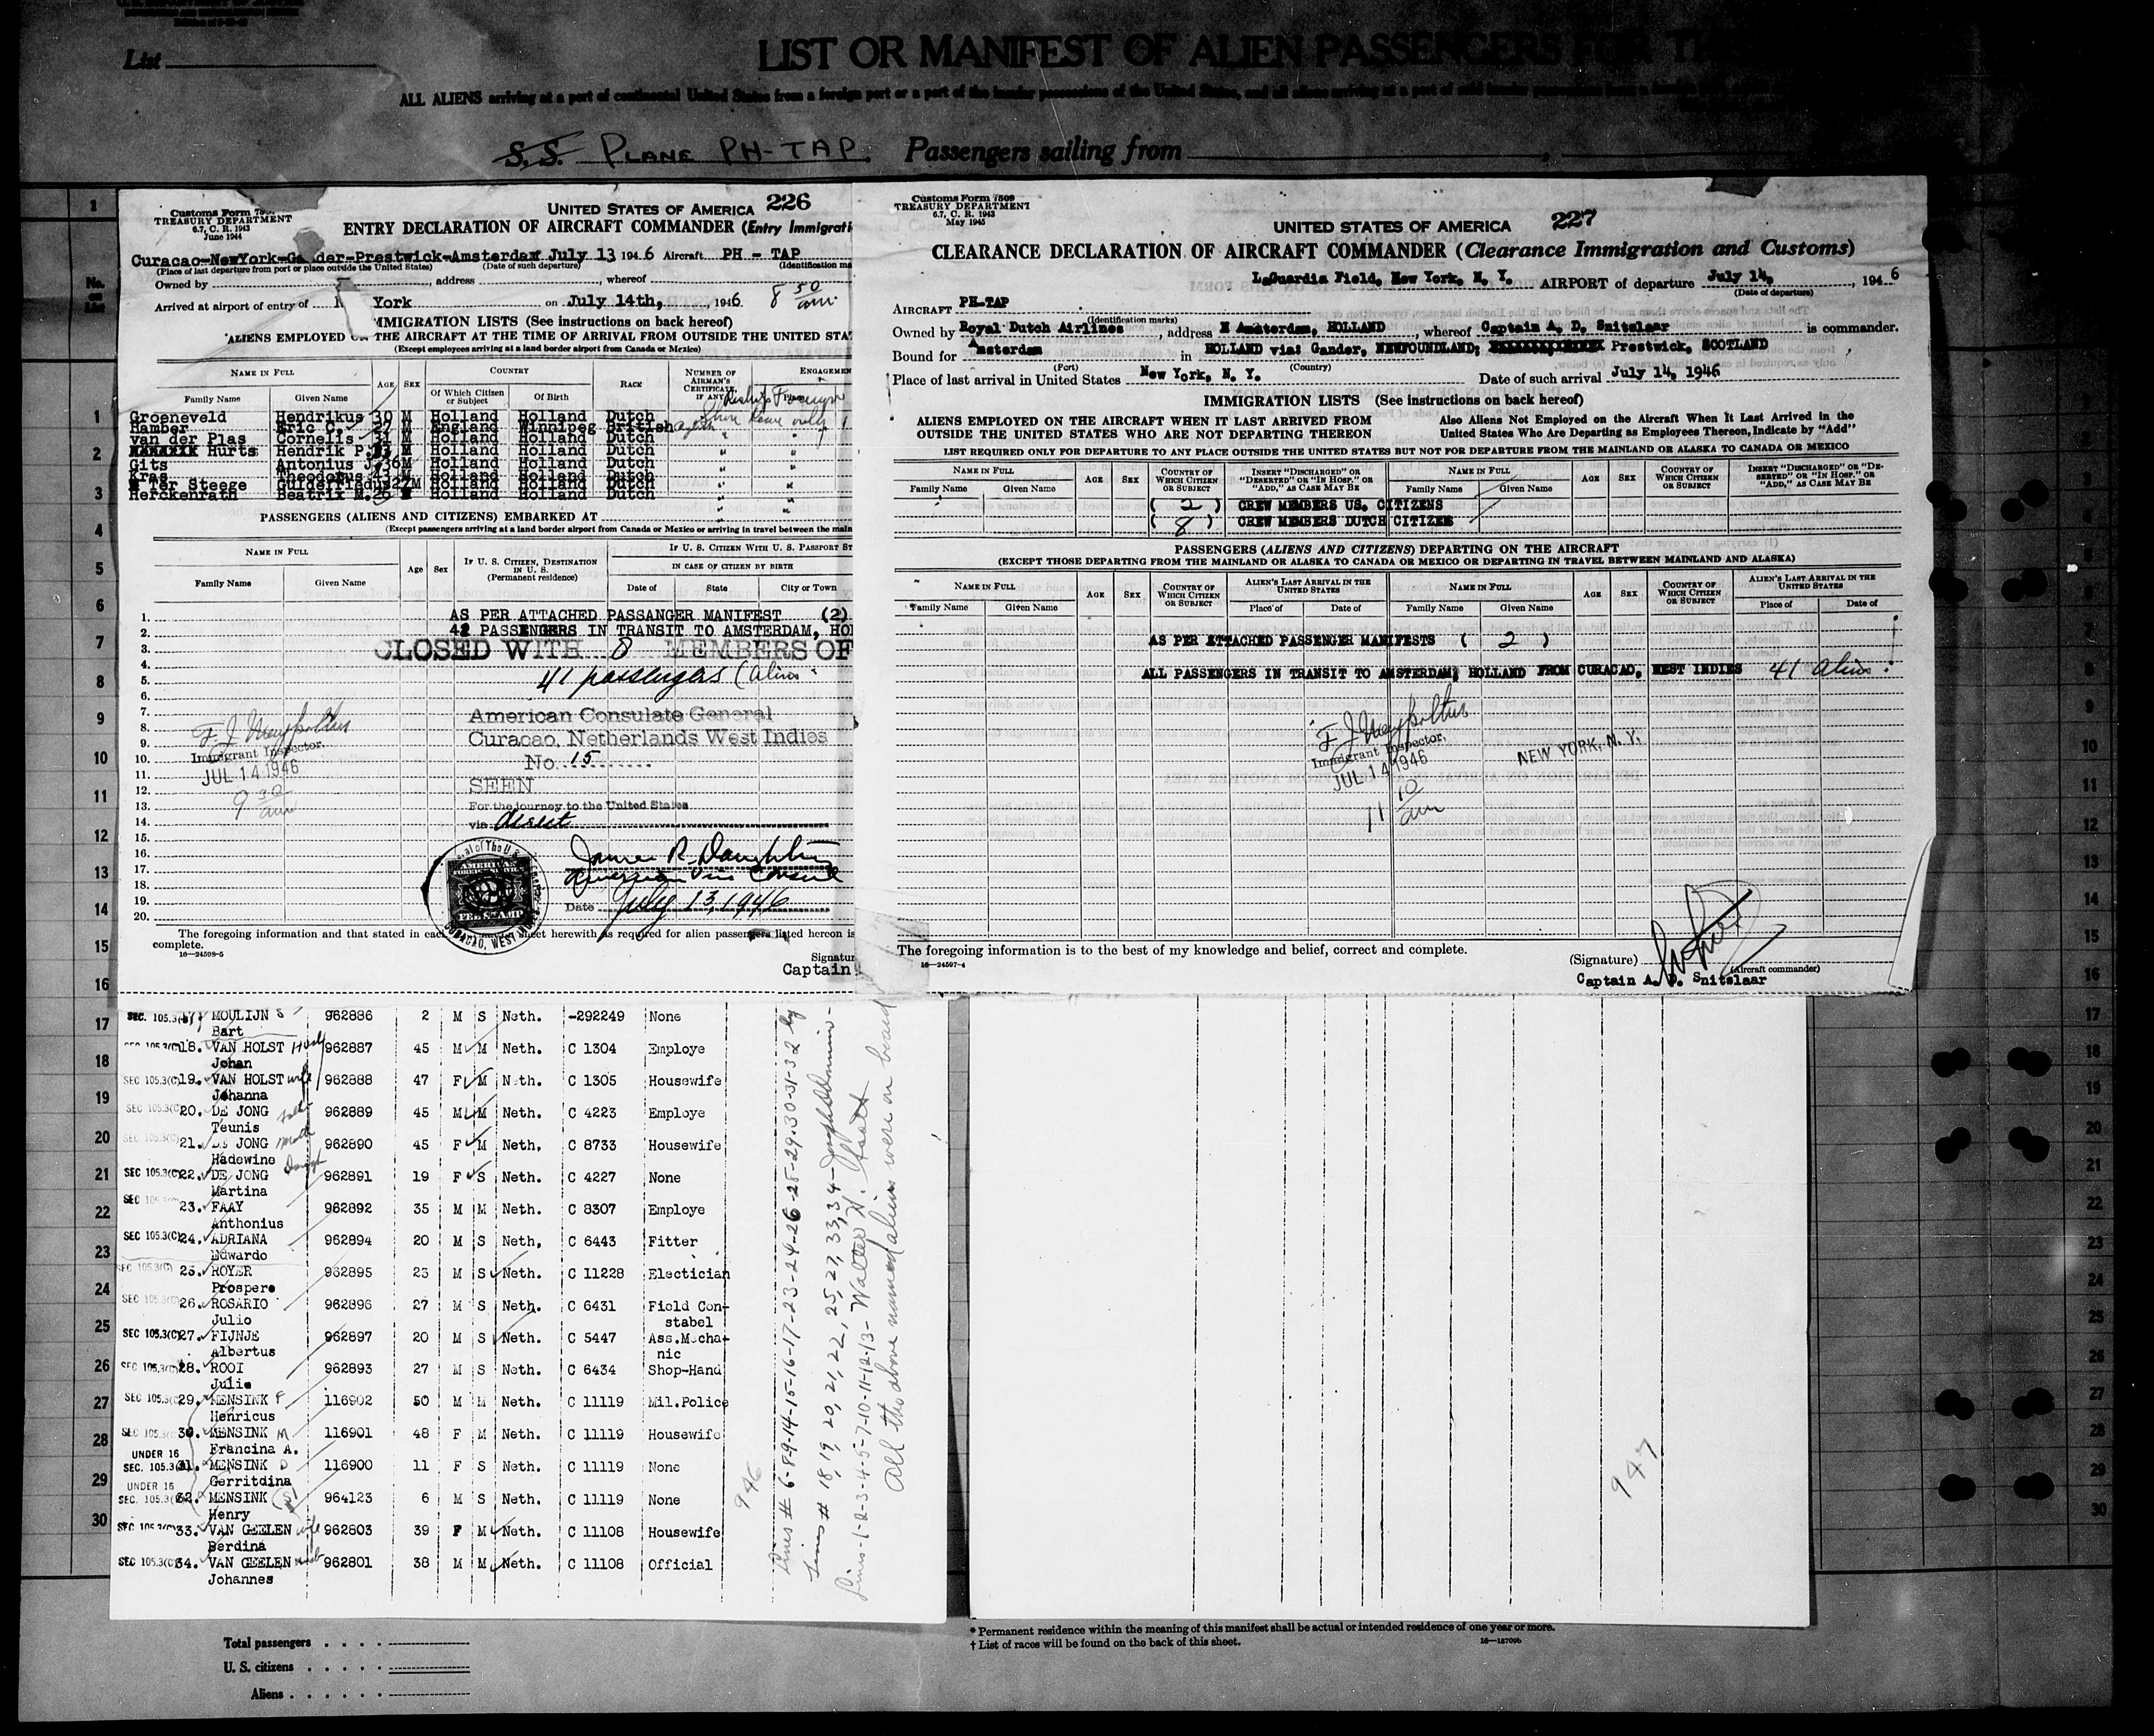 List
LIST OR MANIFEST OF ALIEN PASSENGERS FOR TH
ALL ALIENS arriving at a port of continental United States from a foreign port or a port of the insular possessions of the United States, and all aliens arriving at a port of said insular possessions from a foreign
S.S. PLANE PH-TAP. Passengers sailing from
226
Customs Form 75
TREASURY DEPARTMENT
6.7, C. R. 1943
June 1944
UNITED STATES OF AMERICA
ENTRY DECLARATION OF AIRCRAFT COMMANDER (Entry Immigrati
Curacao-NewYork-Gander-Prestwick-Amsterdam July 13 194 6 Aircraft PH - TAP
(Place of last departure from port or place outside the United States) (Date of such departure) (Identification ma
Owned by , address , whereof
Arrived at airport of entry of York on July 14th, , 1946. 8 50 am.
MMIGRATION LISTS (See instructions on back hereof)
ALIENS EMPLOYED ON THE AIRCRAFT AT THE TIME OF ARRIVAL FROM OUTSIDE THE UNITED STA
(Except employees arriving at a land border airport from Canada or Mexico)
NAME IN FULL AGE SEX COUNTRY RACE NUMBER OF AIRMAN'S CERTIFICATE, IF ANY ENGAGEMEN
Family Name Given Name Of Which Citizen or Subject Of Birth Place
Groeneveld Hendrikus 30 M Holland Holland Dutch
Hamber Eric C. 27 M England Winnipeg British
van der Plas Cornelis 31 M Holland Holland Dutch
Hurts Hendrik P. M Holland Holland Dutch
Gits Antonius J. 36 M Holland Holland Dutch
Kras Theodorus 43 M Holland Holland Dutch
Ter Steege 27 M Holland Holland Dutch
Herckenrath Beatrix M. 26 Holland Holland Dutch
PASSENGERS (ALIENS AND CITIZENS) EMBARKED AT
(Except passengers arriving at a land border airport from Canada or Mexico or arriving in travel between the main
NAME IN FULL Age Sex IF U. S. CITIZEN, DESTINATION IN U. S. (Permanent residence) IF U. S. CITIZEN WITH U. S. PASSPORT ST
IN CASE OF CITIZEN BY BIRTH
Family Name Given Name Date of State City or Town
1. AS PER ATTACHED PASSANGER MANIFEST (2)
2. 42 PASSENGERS IN TRANSIT TO AMSTERDAM, HO
3. CLOSED WITH 8 MEMBERS OF
4.
5. 41 passengers (aliens
6.
7. American Consulate General
8.
9. Curacao, Netherlands West Indies
10. Immigrant Inspector. No. 15
11. JUL 14 1946
12. SEEN
13. 9 30 am For the journey to the United States
14. via direct
15.
16.
17. American Vice Consul
18.
19. Date July 13, 1946
20.
The foregoing information and that stated in each sheet herewith as required for alien passengers listed hereon is
complete.
16—24598-5
Signatur
Captain
227
Customs Form 7509
TREASURY DEPARTMENT
6.7, C. R. 1943
May 1945
UNITED STATES OF AMERICA
CLEARANCE DECLARATION OF AIRCRAFT COMMANDER (Clearance Immigration and Customs)
LaGuardia Field, New York, N. Y. AIRPORT of departure July 14, , 194 6
(Date of departure)
AIRCRAFT PH-TAP
(Identification marks)
Owned by Royal Dutch Airlines , address Amsterdam, HOLLAND , whereof Captain A. D. Snitslaar is commander.
Bound for Amsterdam in HOLLAND via: Gander, NEWFOUNDLAND; Prestwick, SCOTLAND
(Port) (Country)
Place of last arrival in United States New York, N. Y. Date of such arrival July 14, 1946
IMMIGRATION LISTS (See instructions on back hereof)
ALIENS EMPLOYED ON THE AIRCRAFT WHEN IT LAST ARRIVED FROM OUTSIDE THE UNITED STATES WHO ARE NOT DEPARTING THEREON
Also Aliens Not Employed on the Aircraft When It Last Arrived in the United States Who Are Departing as Employees Thereon, Indicate by "Add"
LIST REQUIRED ONLY FOR DEPARTURE TO ANY PLACE OUTSIDE THE UNITED STATES BUT NOT FOR DEPARTURE FROM THE MAINLAND OR ALASKA TO CANADA OR MEXICO
NAME IN FULL AGE SEX COUNTRY OF WHICH CITIZEN OR SUBJECT INSERT "DISCHARGED" OR "DESERTED" OR "IN HOSP." OR "ADD," AS CASE MAY BE NAME IN FULL AGE SEX COUNTRY OF WHICH CITIZEN OR SUBJECT INSERT "DISCHARGED" OR "DESERTED" OR "IN HOSP." OR "ADD," AS CASE MAY BE
Family Name Given Name Family Name Given Name
( 2 ) CREW MEMBERS US. CITIZENS
( 8 ) CREW MEMBERS DUTCH CITIZEN
PASSENGERS (ALIENS AND CITIZENS) DEPARTING ON THE AIRCRAFT
(EXCEPT THOSE DEPARTING FROM THE MAINLAND OR ALASKA TO CANADA OR MEXICO OR DEPARTING IN TRAVEL BETWEEN MAINLAND AND ALASKA)
NAME IN FULL AGE SEX COUNTRY OF WHICH CITIZEN OR SUBJECT ALIEN'S LAST ARRIVAL IN THE UNITED STATES NAME IN FULL AGE SEX COUNTRY OF WHICH CITIZEN OR SUBJECT ALIEN'S LAST ARRIVAL IN THE UNITED STATES
Family Name Given Name Place of Date of Family Name Given Name Place of Date of
AS PER ATTACHED PASSENGER MANIFESTS ( 2 )
ALL PASSENGERS IN TRANSIT TO AMSTERDAM, HOLLAND FROM CURACAO, WEST INDIES 41 aliens
Immigrant Inspector. NEW YORK, N. Y.
JUL 14 1946
11 10 am
The foregoing information is to the best of my knowledge and belief, correct and complete.
16—24597-4
(Signature)
(Aircraft commander)
Captain A. D. Snitslaar
SEC. 105.3 17. MOULIJN S 962886 2 M S Neth. -292249 None
Bart
18. VAN HOLST 962887 45 M M Neth. C 1304 Employe
Johan
SEC 105.3(C) 19. VAN HOLST wife 962888 47 F M Neth. C 1305 Housewife
Johanna
SEC 105.3(C) 20. DE JONG 962889 45 M M Neth. C 4223 Employe
Teunis
SEC 105.3(C) 21. DE JONG 962890 45 F M Neth. C 8733 Housewife
Hadewine
SEC 105.3(C) 22. DE JONG 962891 19 F S Neth. C 4227 None
Martina
SEC 23. FAAY 962892 35 M M Neth. C 8307 Employe
Anthonius
SEC 105.3(C) 24. ADRIANA 962894 20 M S Neth, C 6443 Fitter
Edwardo
SEC 105.3(C) 25. ROYER 962895 23 M S Neth. C 11228 Electician
Prospere
SEC 105.3(C) 26. ROSARIO 962896 27 M S Neth. C 6431 Field Con-
Julio stabel
SEC 105.3(C) 27. FIJNJE 962897 20 M S Neth. C 5447 Ass.Mecha-
Albertus nic
SEC 105.3(C) 28. ROOI 962893 27 M S Neth. C 6434 Shop-Hand
Julio
SEC 105.3(C) 29. MENSINK F 116902 50 M M Neth. C 11119 Mil.Police
Henricus
SEC 105.3 30. MENSINK M 116901 48 F M Neth. C 11119 Housewife
UNDER 16 Francina A.
SEC. 105.3 31. MENSINK D 116900 11 F S Neth. C 11119 None
UNDER 16 Gerritdina
SEC. 105.3 32. MENSINK S 964123 6 M S Neth. C 11119 None
Henry
SEC 105.3(C) 33. VAN GEELEN wife 962803 39 F M Neth. C 11108 Housewife
Berdina
SEC 105.3(C) 34. VAN GEELEN 962801 38 M M Neth. C 11108 Official
Johannes
946
Lines # 6-8-9-14-15-16-17-23-24-26-28-29-30-31-32 by
Lines # 18, 19, 20, 21, 22, 25, 27, 33, 34
Lines-1-2-3-4-5-7-10-11-12-13- Walter H.
All the above named aliens were on board
947
* Permanent residence within the meaning of this manifest shall be actual or intended residence of one year or more.
† List of races will be found on the back of this sheet.
Total passengers
U. S. citizens
Aliens